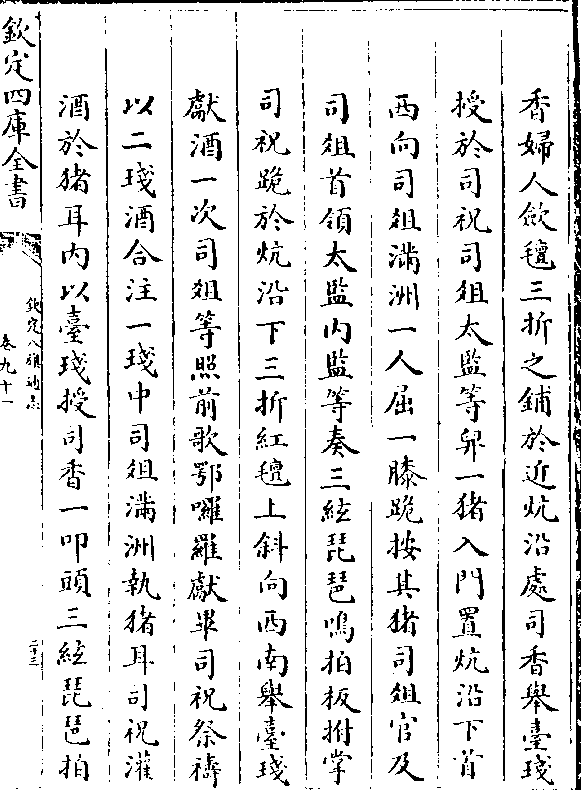 香婦人斂氊三折之鋪於近炕沿處司香舉臺琖
授於司祝司俎太監等舁一猪入門置炕沿下首
西向司俎滿洲一人屈一膝跪按其猪司俎官及
司俎首領太監内監等奏三絃琵琶鳴拍板拊掌
司祝跪於炕沿下三折紅氊上斜向西南舉臺琖
獻酒一次司俎等照前歌鄂囉羅獻畢司祝祭禱
以二琖酒合注一琖中司俎滿洲執猪耳司祝灌
酒於猪耳内以臺琖授司香一叩頭三絃琵琶拍
欽定四庫全書
欽定八旗通志
卷九十一
二十三